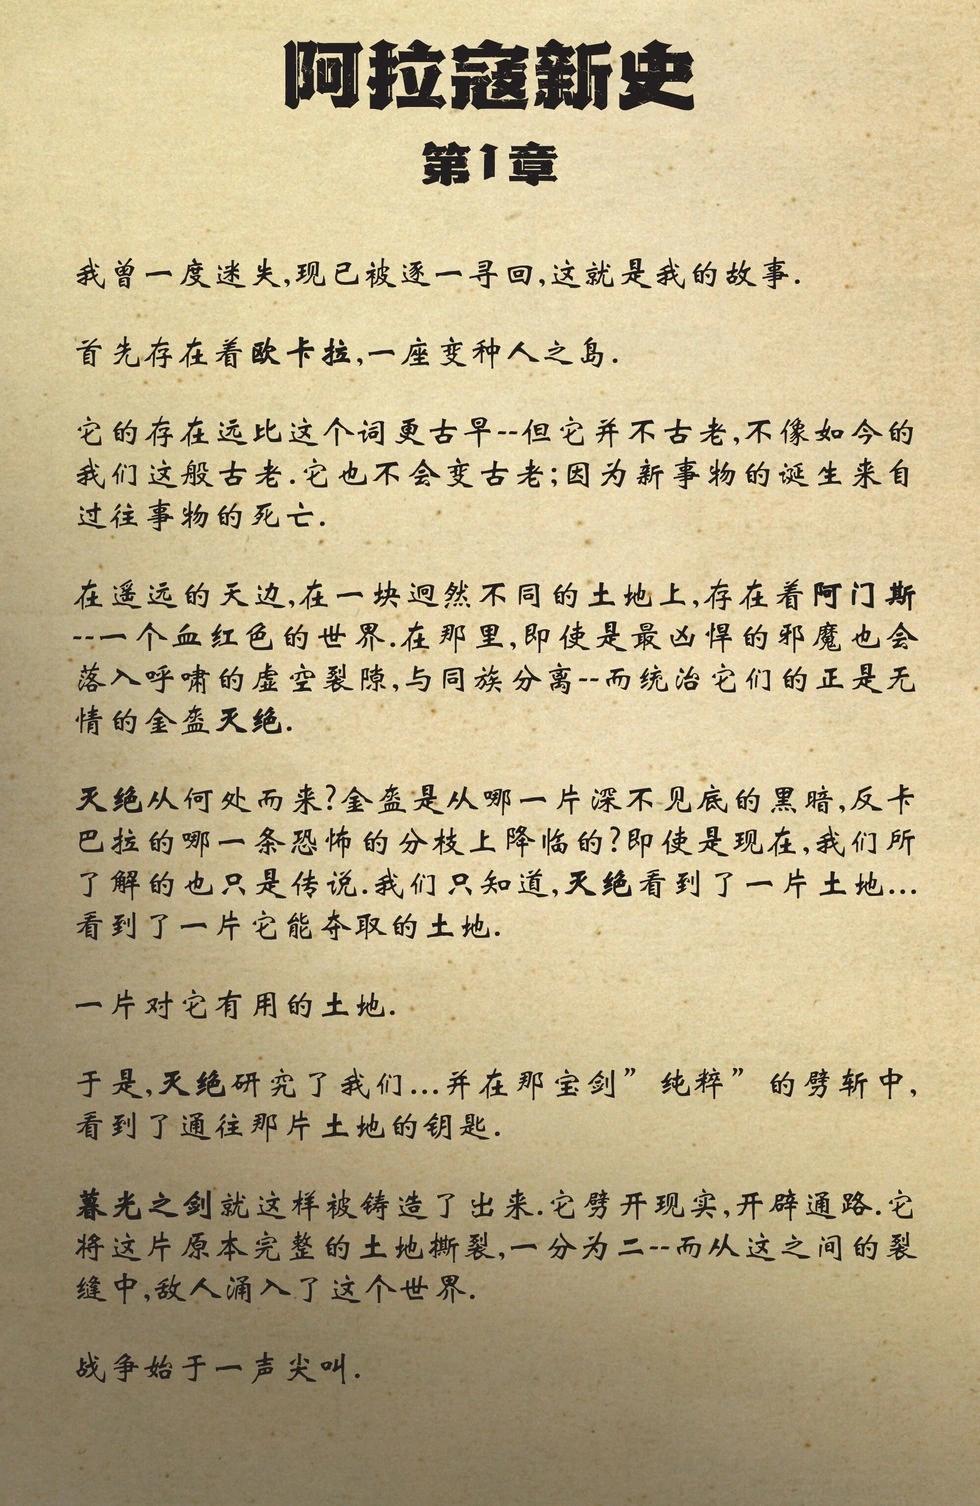 阿拉寇新史
第1章
我曾一度迷失,现已被逐一寻回,这就是我的故事.
首先存在着欧卡拉,一座变种人之岛.
它的存在远比这个词更古早--但它并不古老,不像如今的
我们这般古老.它也不会变古老;因为新事物的诞生来自
过往事物的死亡.
在遥远的天边,在一块迥然不同的土地上,存在着阿门斯
--一个血红色的世界.在那里,即使是最凶悍的邪魔也会
落入呼啸的虚空裂隙,与同族分离--而统治它们的正是无
情的金盔灭绝.
灭绝从何处而来?金盔是从哪一片深不见底的黑暗,反卡
巴拉的哪一条恐怖的分枝上降临的?即使是现在,我们所
了解的也只是传说.我们只知道,灭绝看到了一片土地...
看到了一片它能夺取的土地.
一片对它有用的土地.
于是,灭绝研究了我们...并在那宝剑”纯粹”的劈斩中,
看到了通往那片土地的钥匙.
暮光之剑就这样被铸造了出来.它劈开现实,开辟通路.它
将这片原本完整的土地撕裂,一分为二--而从这之间的裂
缝中,敌人涌入了这个世界.
战争始于一声尖叫.